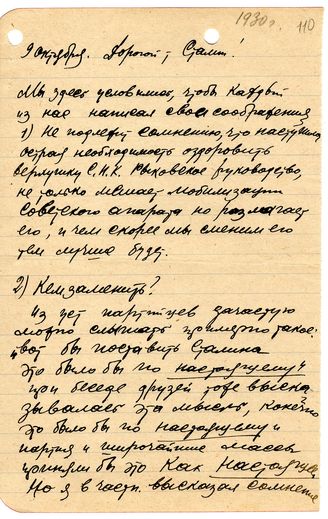 1930 г.
110
9 октября. Дорогой т. Сталин!
Мы здесь условились, чтобы каждый
из нас написал свои соображения
1) Не подлежит сомнению, что наступила
острая необходимость оздоровить
верхушку С.Н.К. Рыковское руководство,
не только мешает мобилизации
советского апарата но разлагает
его, и чем скорее мы сменим его
тем лучше будет.
2) Кем заменить?
Из уст партийцев зачастую
можно слышать примерно такое:
"вот бы поставить Сталина
это было бы по настоящему"
при беседе друзей тоже выска
зывалась эта мысль, конечно
это было бы по настоящему и
партия и широчайшие массы
приняли бы это как настоящее
Но я в частн. высказал сомнение